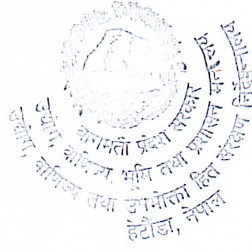 बागमती प्रदेश सरकार
उद्योग, वाणिज्य, भूमि तथा प्रशासन मन्त्रालय
उद्योग, वाणिज्य तथा उपभोक्ता हित संरक्षण निर्देशनालय
हेटौंडा, नेपाल